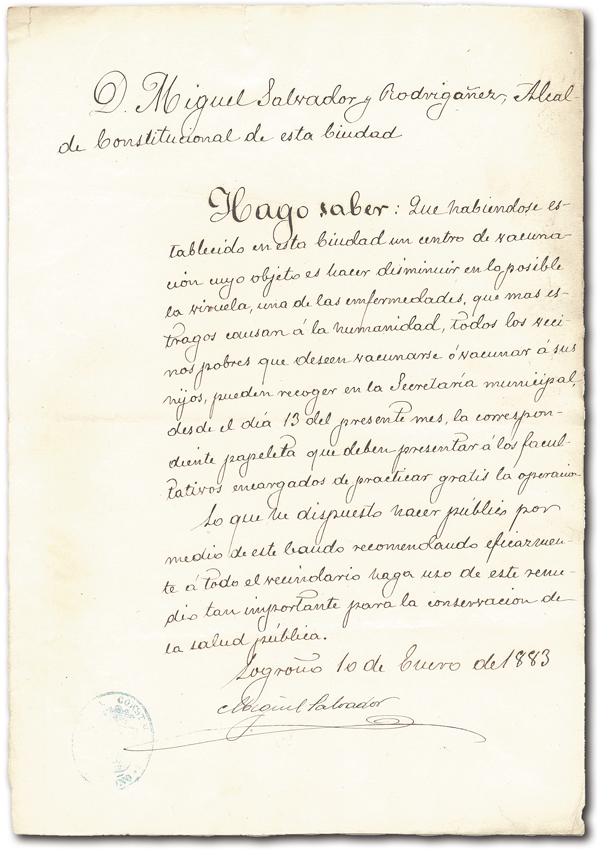 D. Miguel Salvador y Rodrigañez, Alcal-
de Constitucional de esta Ciudad
Hago saber: Que habiendose es-
tablecido en esta Ciudad un centro de vacuna-
ción cuyo objeto es hacer disminuir en lo posible
la viruela, una de las enfermedades, que mas es-
tragos causan á la humanidad, todos los veci-
nos pobres que deseen vacunarse ó vacunar á sus
hijos, pueden recoger en la Secretaría municipal,
desde el día 13 del presente mes, la correspon-
diente papeleta que deben presentar á los facul-
tativos encargados de practicar gratis la operacion
Lo que he dispuesto hacer públic por
medio de este bando recomendando eficazmen-
te á todo el vecindario haga uso de este reme-
dio tan importante para la conservacion de
la salud pública.
Logroño 10 de Enero de 1883
Miguel Salvador
CONST